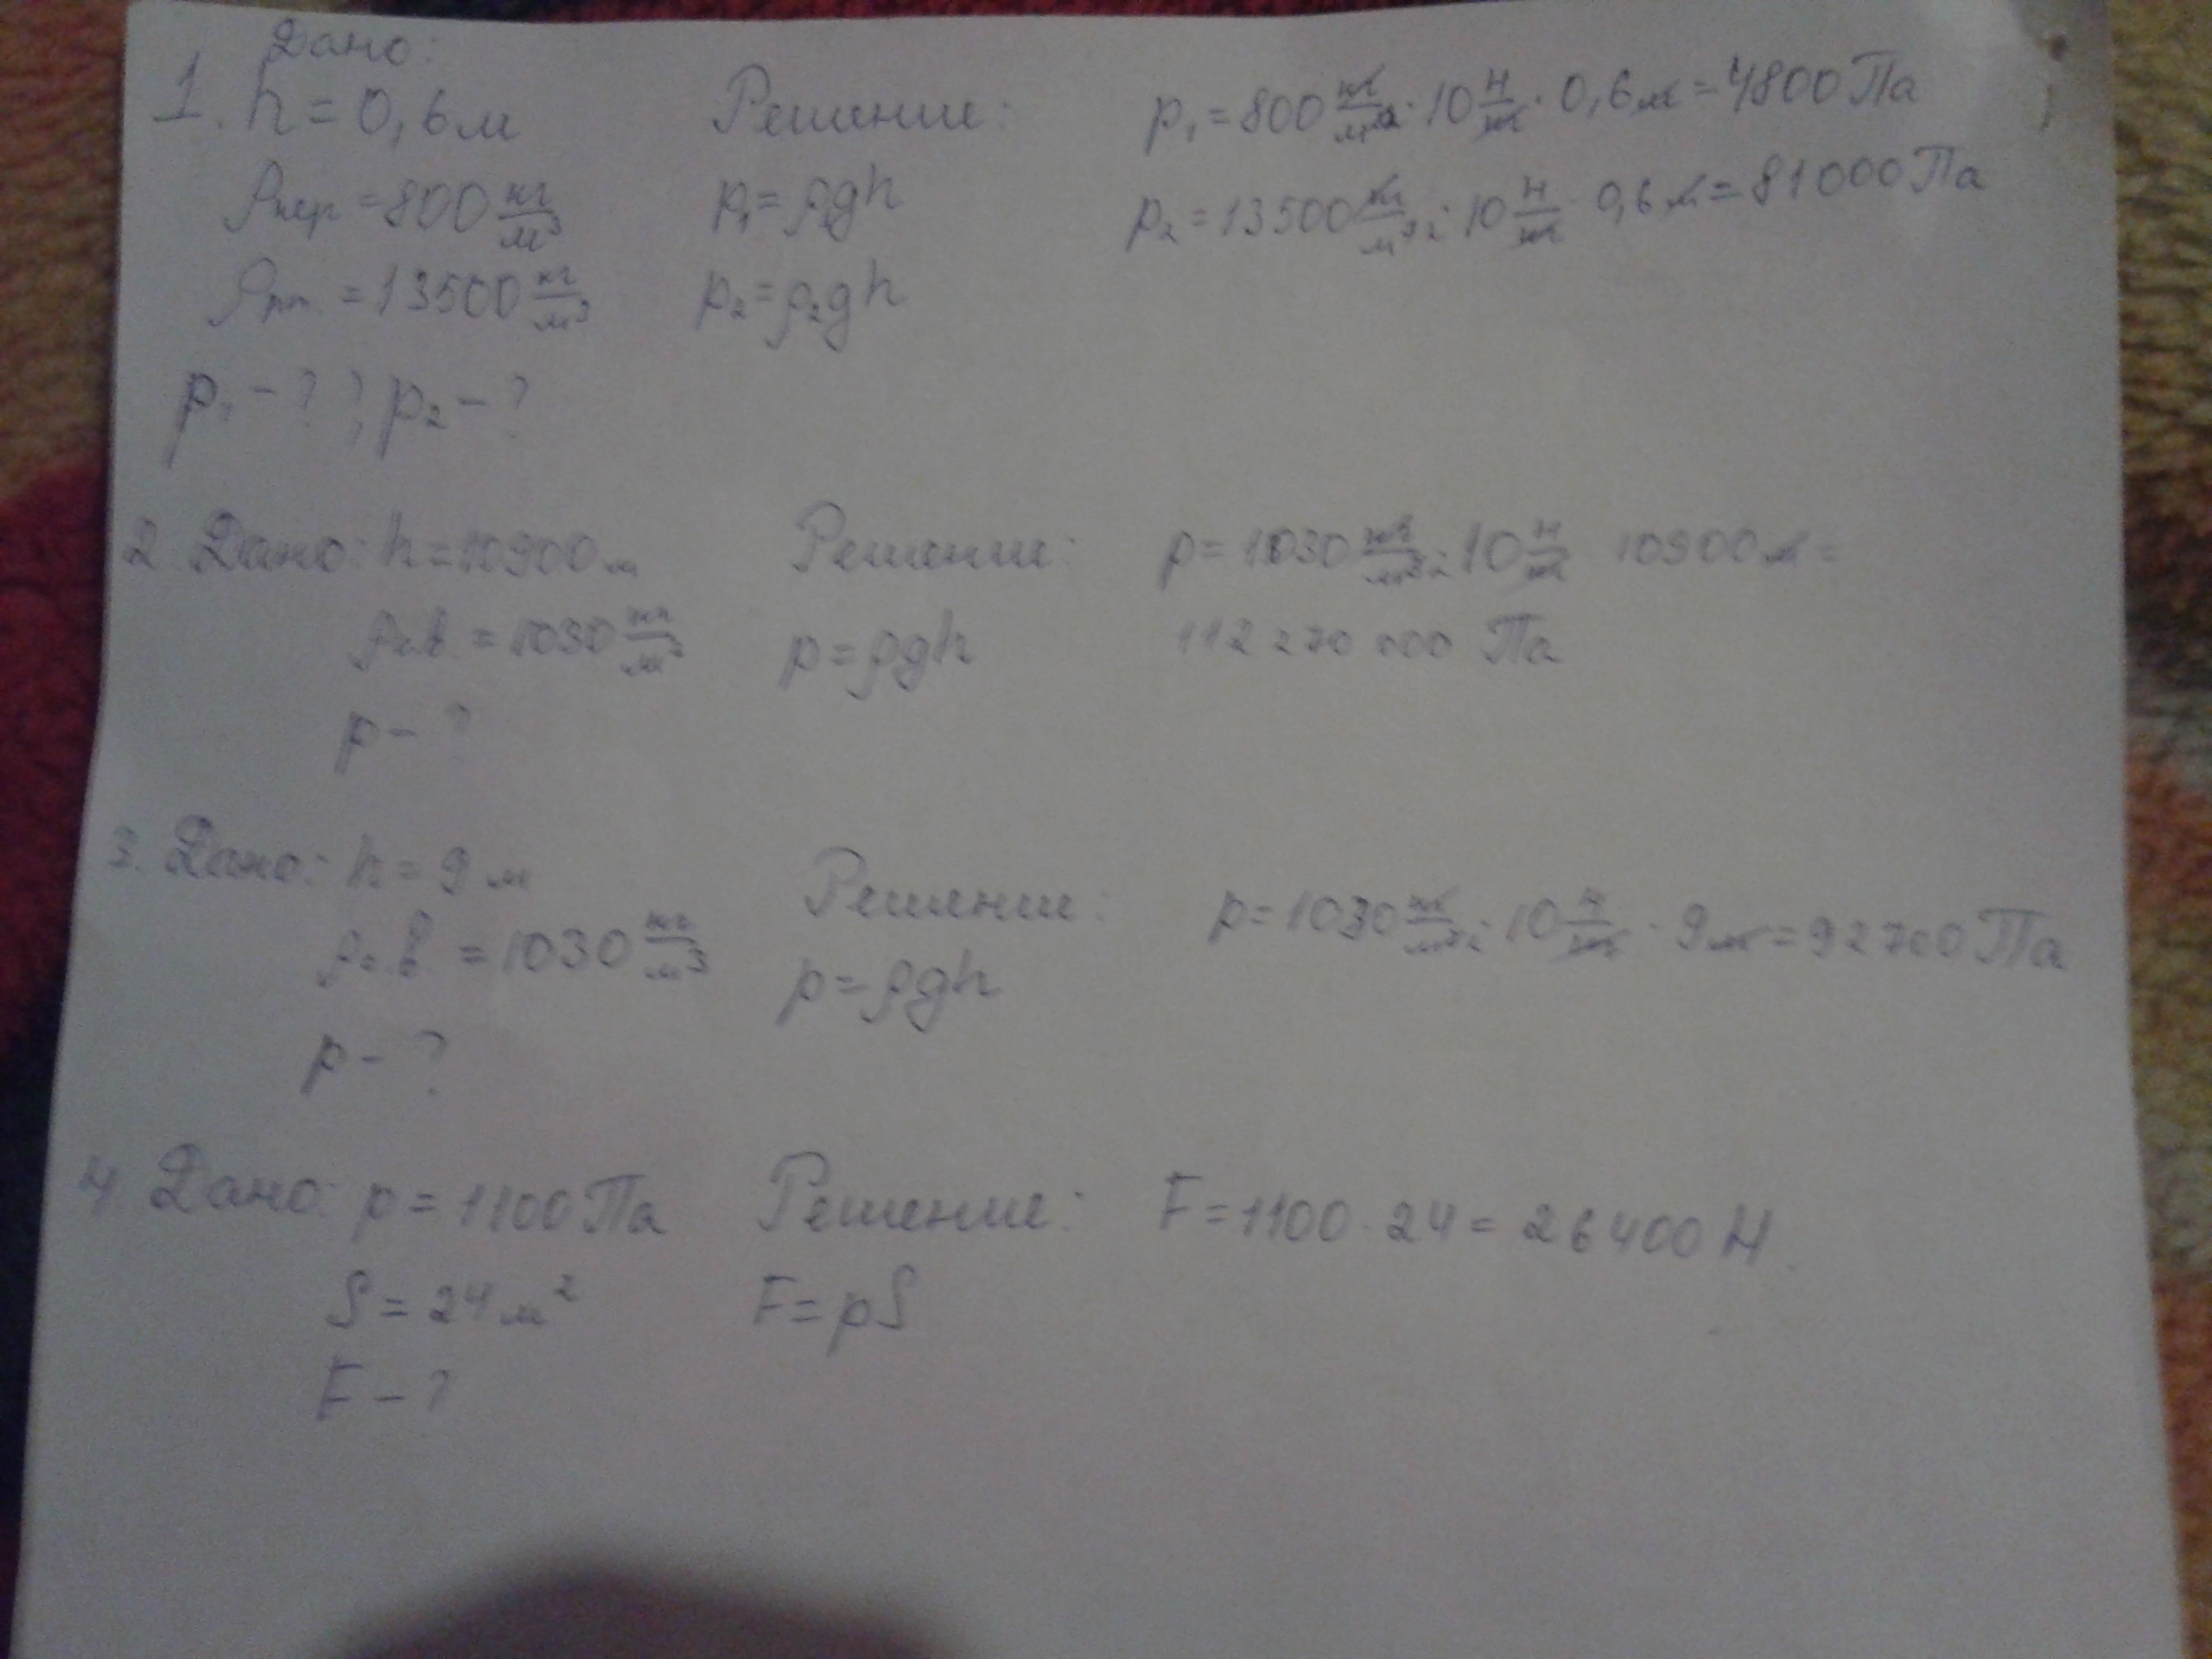 Дано:
1. h = 0,6 м
ρкер = 800 кг/м³
ρрт. = 13500 кг/м³
p₁ - ? ; p₂ - ?
Решение:
p₁ = ρ₁gh
p₂ = ρ₂gh
p₁ = 800 кг/м³ · 10 Н/кг · 0,6 м = 4800 Па
p₂ = 13500 кг/м³ · 10 Н/кг · 0,6 м = 81000 Па
2 Дано: h = 10900 м
ρв = 1030 кг/м³
p - ?
Решение:
p = ρgh
p = 1030 кг/м³ · 10 Н/кг 10900 м =
112 270 000 Па
3. Дано: h = 9 м
ρв = 1030 кг/м³
p - ?
Решение:
p = ρgh
p = 1030 кг/м³ · 10 Н/кг · 9 м = 92700 Па
4 Дано: p = 1100 Па
S = 24 м²
F - ?
Решение:
F = pS
F = 1100 · 24 = 26400 Н